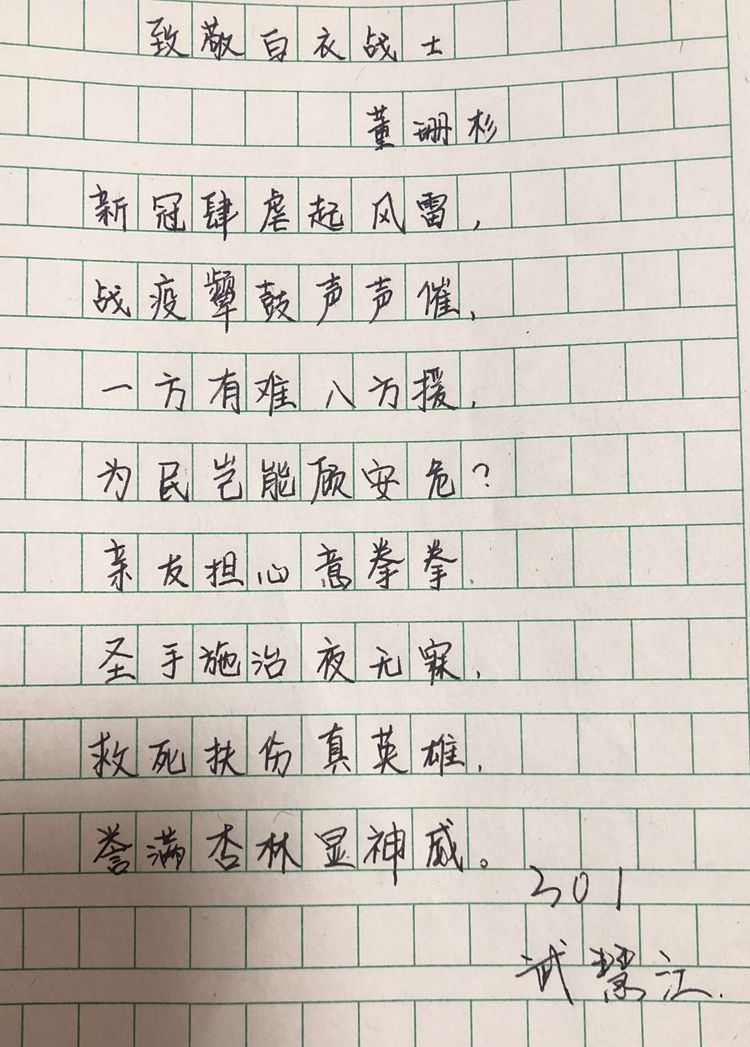 致敬白衣战士
董珊杉
新冠肆虐起风雷，
战疫鼙鼓声声催，
一方有难八方援，
为民岂能顾安危？
亲友担心意拳拳，
圣手施治夜无寐，
救死扶伤真英雄，
誉满杏林显神威。
301
武慧江